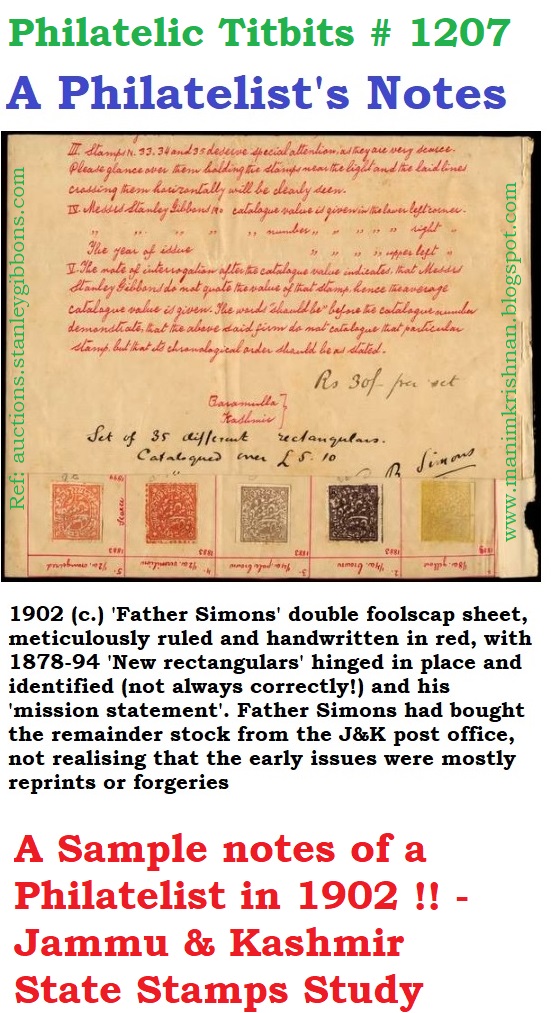 Philatelic Titbits # 1207
A Philatelist's Notes
Ref: auctions.stanleygibbons.com
www.manimkrishnan.blogspot.com
III. Stamps N. 33. 34 and 35 deserve special attention, as they are very scarce.
Please glance over them holding the stamps near the light and the laid lines
crossing them horizontally will be clearly seen.
IV. Messrs Stanley Gibbons catalogue value is given in the lower left corner.
" " " " " number " " " " right "
The year of issue " " " " upper left "
V. The note of interrogation after the catalogue value indicates, that Messrs
Stanley Gibbons do not quote the value of that stamp, hence the average
catalogue value is given. The words "should be" before the catalogue number
demonstrate, that the above said firm do not catalogue that particular
stamp, but that its chronological order should be as stated.
Rs 30/- per set
Baramulla
Kashmir
Set of 35 different rectangulars.
Catalogued over £ 5. 10
Simons
Scarce
5. 1/2a. orange red
4. 1/2a. vermilion 1883
3. 1/4a. pale brown 1883
2. 1/4a. brown 1883
1. 1/8a. yellow
1902 (c.) 'Father Simons' double foolscap sheet,
meticulously ruled and handwritten in red, with
1878-94 'New rectangulars' hinged in place and
identified (not always correctly!) and his
'mission statement'. Father Simons had bought
the remainder stock from the J&K post office,
not realising that the early issues were mostly
reprints or forgeries
A Sample notes of a
Philatelist in 1902 !! -
Jammu & Kashmir
State Stamps Study